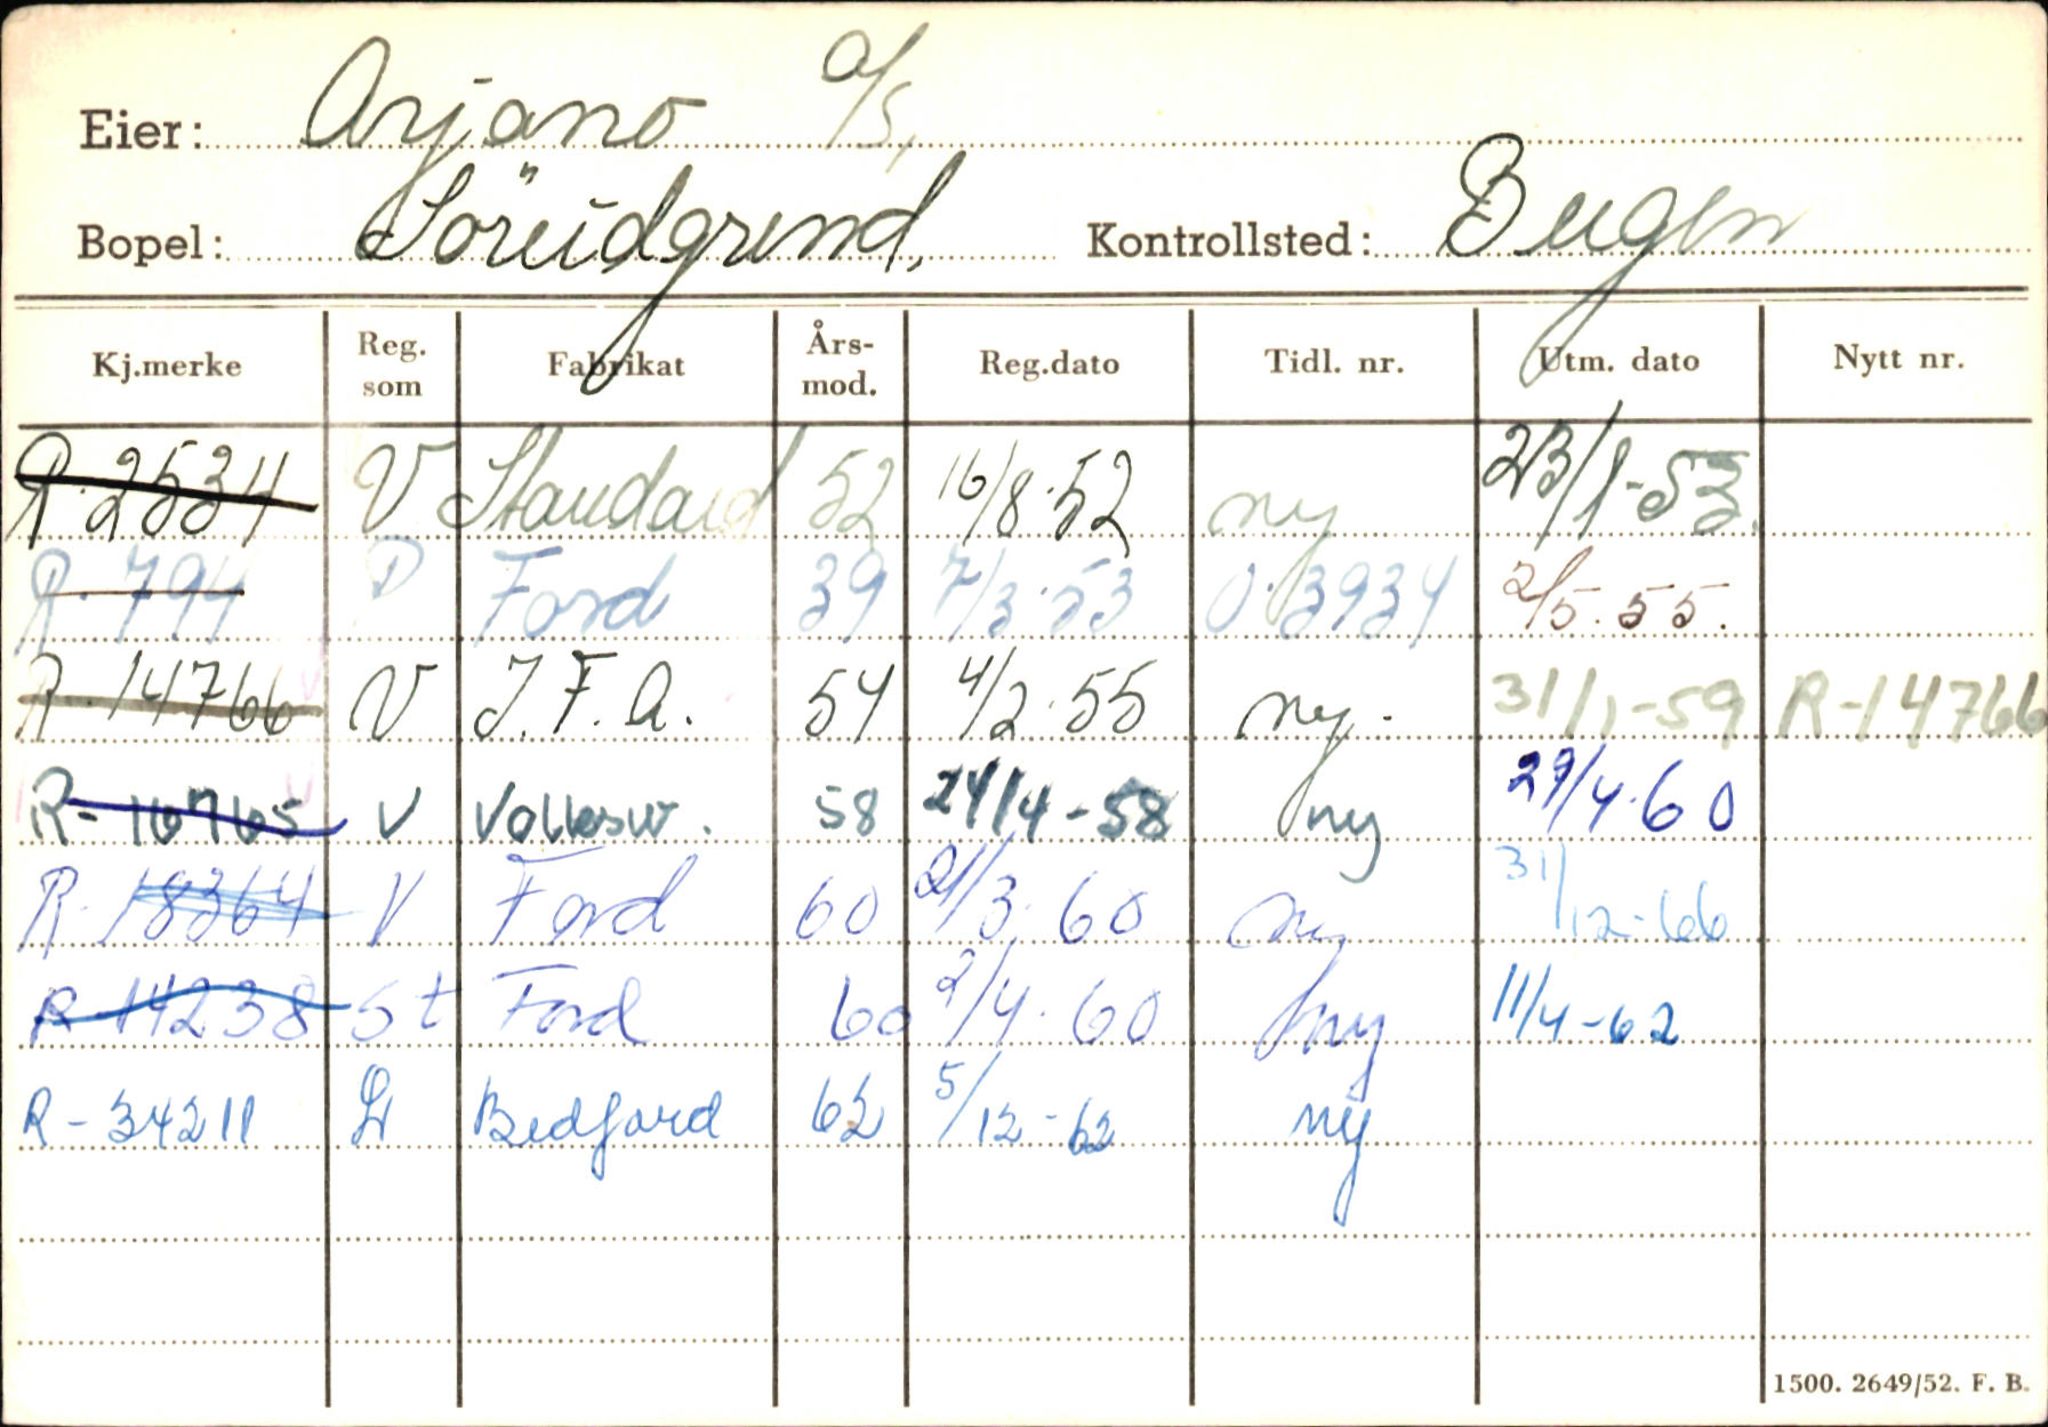 Eier: Arjano A/S,
Bopel: Söreidgrend, Kontrollsted: Bergen
Kj.merke Reg. som Fabrikat Års-mod. Reg.dato Tidl. nr. Utm. dato Nytt nr.
R. 2534 V Standard 52 16/8.52 ny 23/1-53.
R. 794 P Ford 39 7/3.53 O.3934 2/5.55.
R. 14766 V J.F.A. 54 4/2.55 ny. 31/1-59 R-14766
R- 16765 V Volksw. 58 24/4-58 ny 29/4.60
R. 18364 V Ford 60 21/3.60 ny 31/12-66
R-14238 St Ford 60 2/4.60 ny 11/4-62
R-34211 L Bedford 62 5/12-62 ny
1500. 2649/52. F. B.